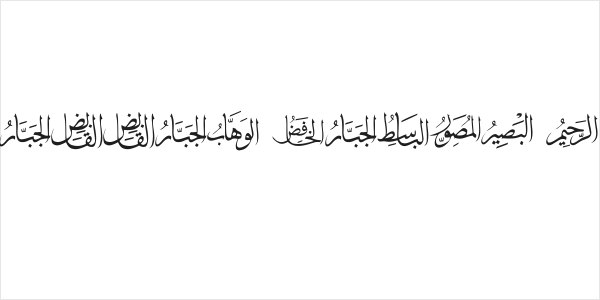 الرَّحِيمُ الْبَصِيرُ الْمُصَوِّرُ الْبَاسِطُ الْجَبَّارُ الْخَافِضُ الْوَهَّابُ الْجَبَّارُ الْقَابِضُ الْقَابِضُ الْجَبَّارُ